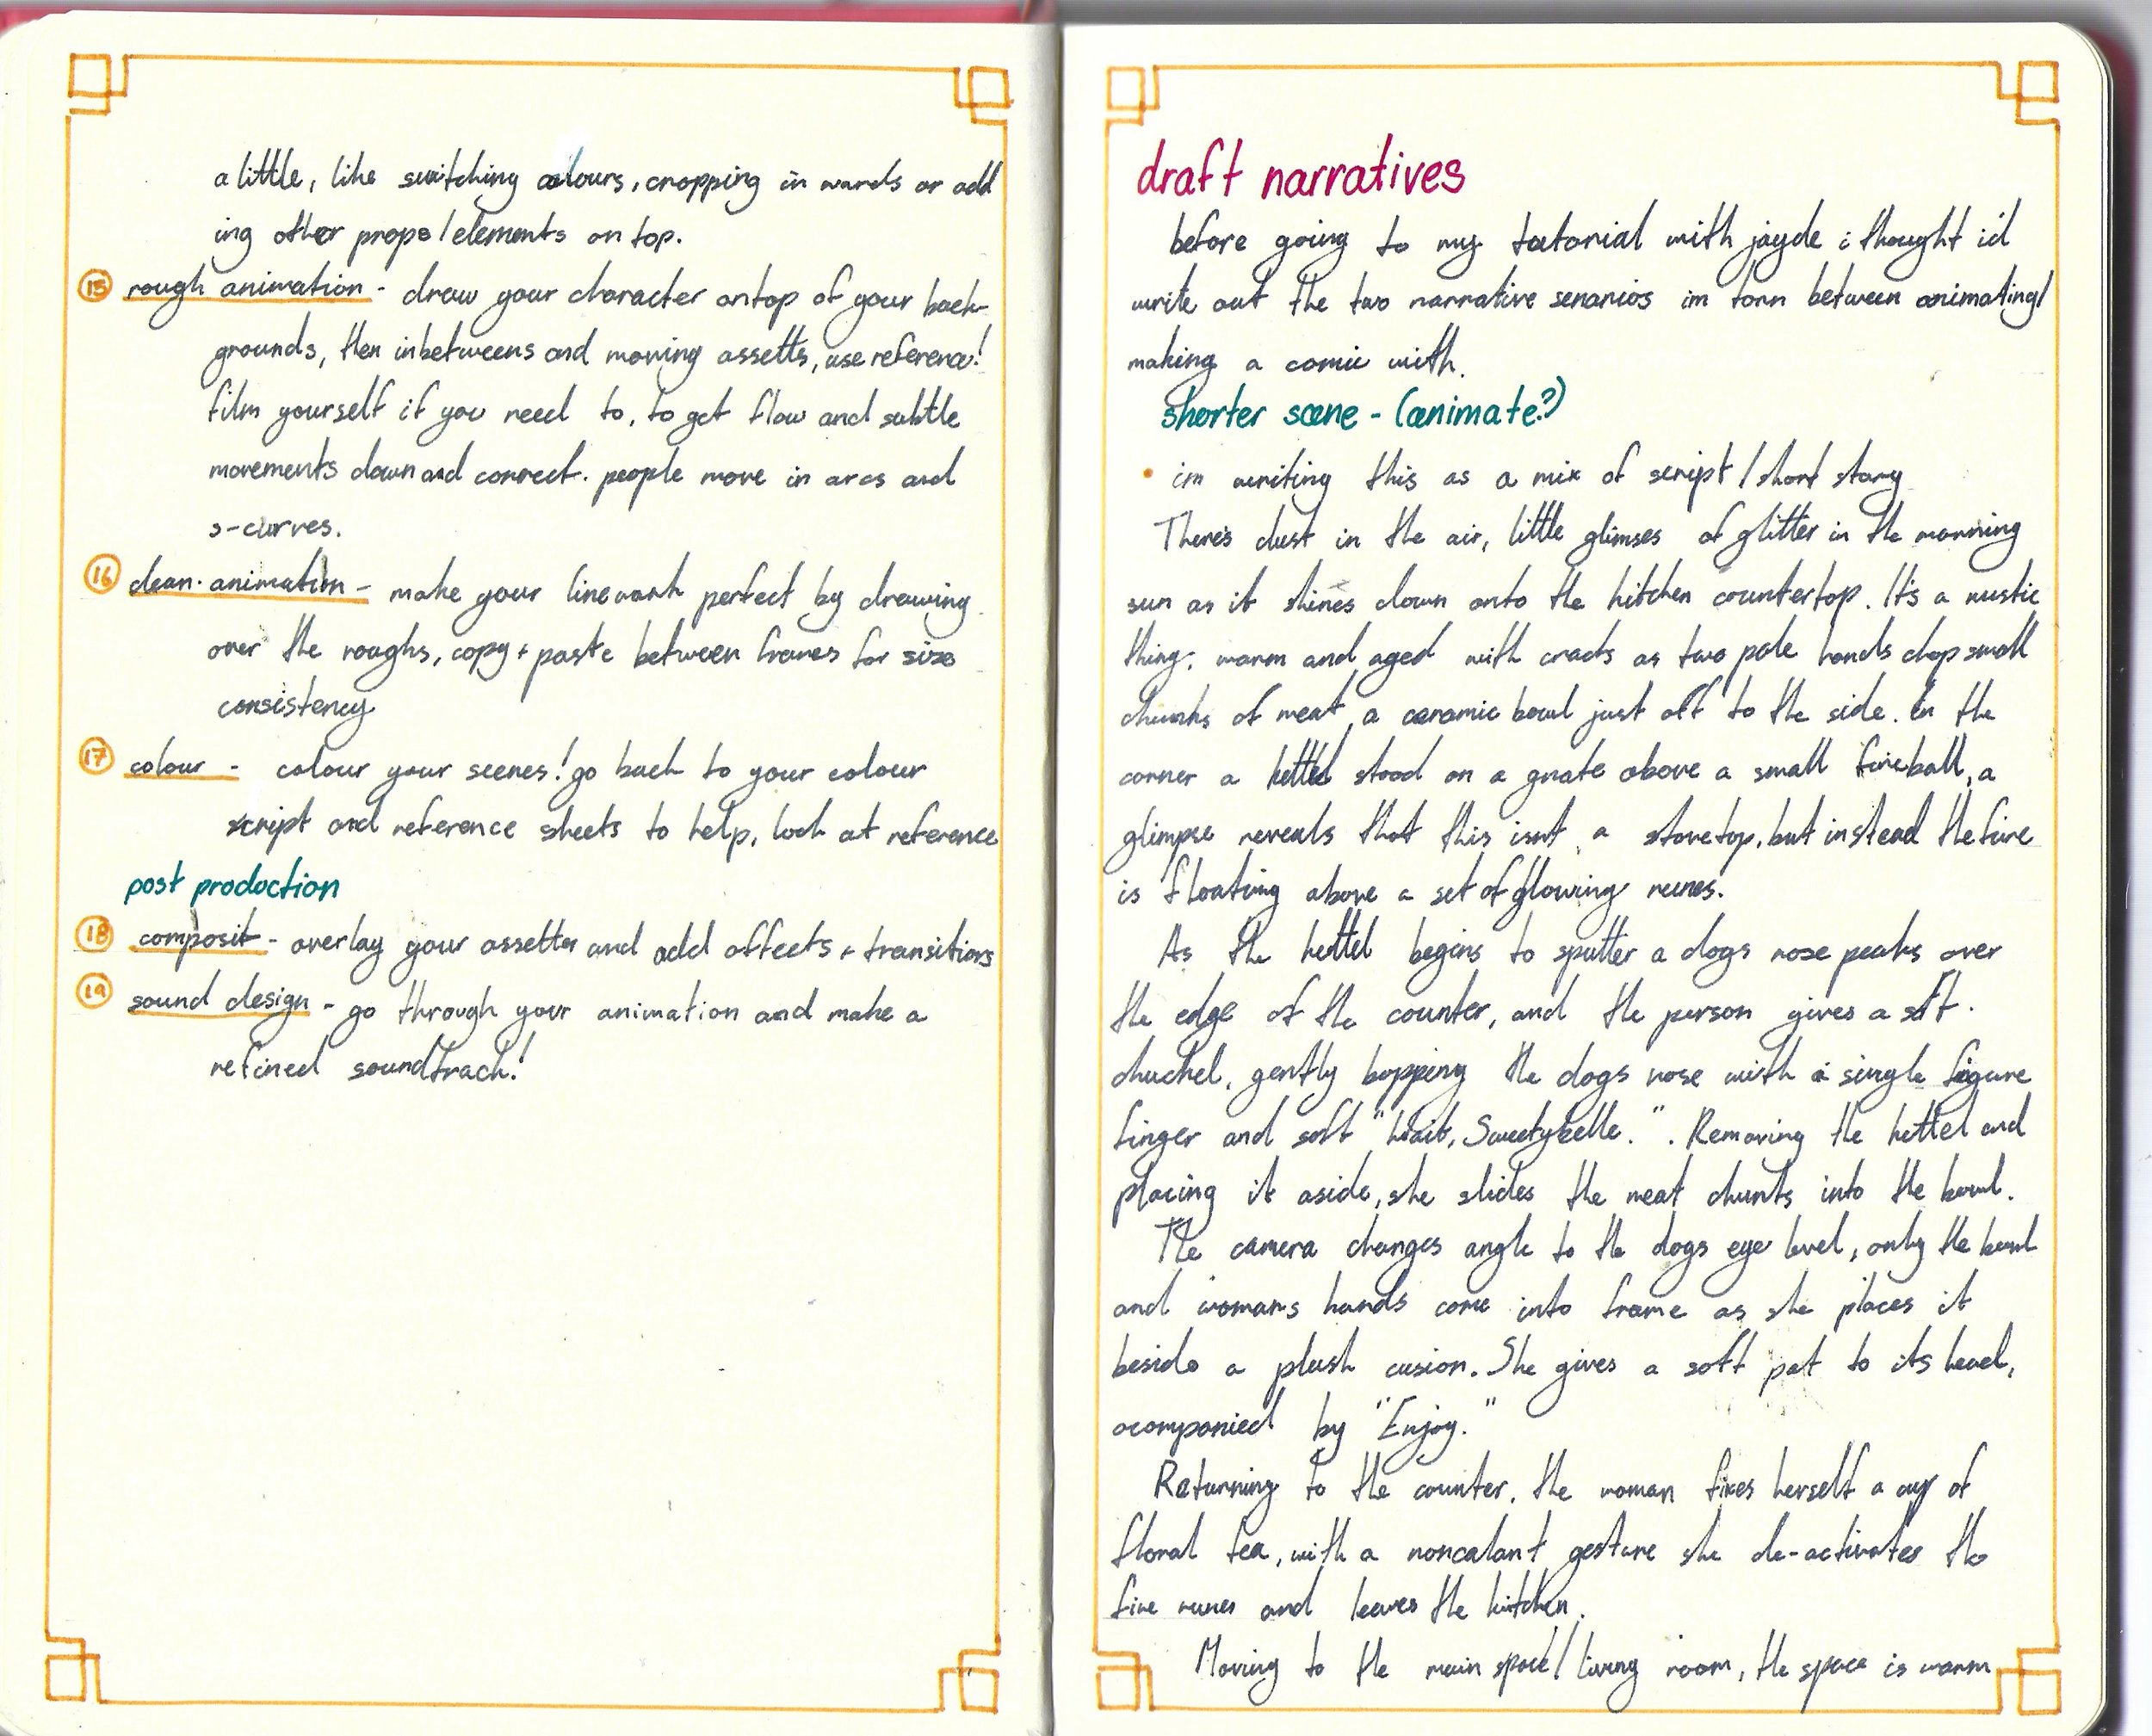 a little, like switching colours, cropping in wards or add
ing other props/elements on top.
15 rough animation - draw your character ontop of your back-
grounds, then inbetweens and moving assetts, use reference!
film yourself if you need to, to get flow and subtle
movements down and correct. people move in arcs and
s-curves.
16 clean animation - make your linework perfect by drawing
over the roughs, copy + paste between frames for size
consistency
17 colour - colour your scenes! go back to your colour
script and reference sheets to help, look at reference
post production
18 composit - overlay your assetts and add effects + transitions
19 sound design - go through your animation and make a
refined soundtrack!
draft narratives
before going to my tutorial with jayde i thought i'd
write out the two narrative senarios im torn between animating/
making a comic with.
shorter scene - (animate?)
• im writing this as a mix of script / short story
There's dust in the air, little glimses of glitter in the morning
sun as it shines down onto the kitchen countertop. It's a rustic
thing, warm and aged with cracks as two pale hands chop small
chunks of meat, a ceramic bowl just off to the side. In the
corner a kettel stood on a grate above a small fireball, a
glimpse reveals that this isnt a stovetop, but instead the fire
is floating above a set of glowing runes.
As the kettel begins to sputter a dogs nose peaks over
the edge of the counter, and the person gives a soft
chuckel, gently bopping the dogs nose with a single figure
finger and soft "Wait, Sweetybelle.". Removing the kettel and
placing it aside, she slides the meat chunks into the bowl.
The camera changes angle to the dogs eye level, only the bowl
and womans hands come into frame as she places it
beside a plush cusion. She gives a soft pat to its head,
acompanied by "Enjoy."
Returning to the counter, the woman fixes herself a cup of
floral tea, with a noncalant gesture she de-activates the
fire runes and leaves the kitchen.
Moving to the main space/ living room, the space is warm